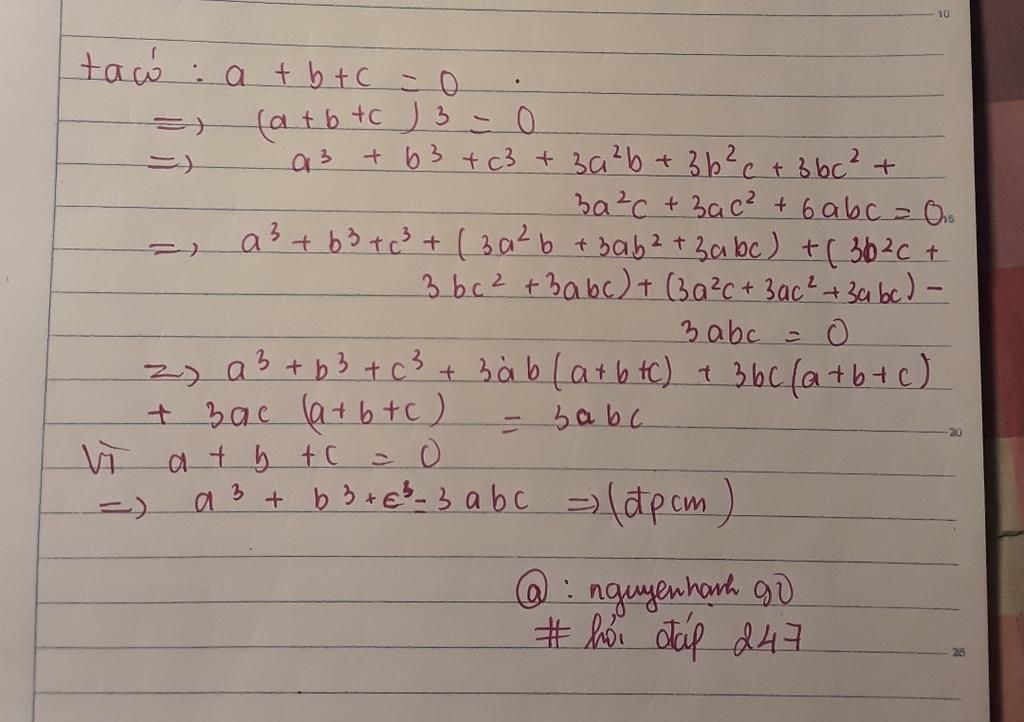 10
ta có : a + b + c = 0 .
=> (a + b + c ) 3 = 0
=> a³ + b³ + c³ + 3a²b + 3b²c + 3bc² +
3a²c + 3ac² + 6abc = 0 15
=> a³ + b³ + c³ + (3a²b + 3ab² + 3abc) + (3b²c +
3bc² + 3abc) + (3a²c + 3ac² + 3abc) -
3abc = 0
=> a³ + b³ + c³ + 3ab (a + b + c) + 3bc (a + b + c)
+ 3ac (a + b + c) = 3abc
20
Vì a + b + c = 0
=> a³ + b³ + c³ = 3abc => (đpcm)
@ : nguyenhạnh 90
# hỏi đáp 247
25